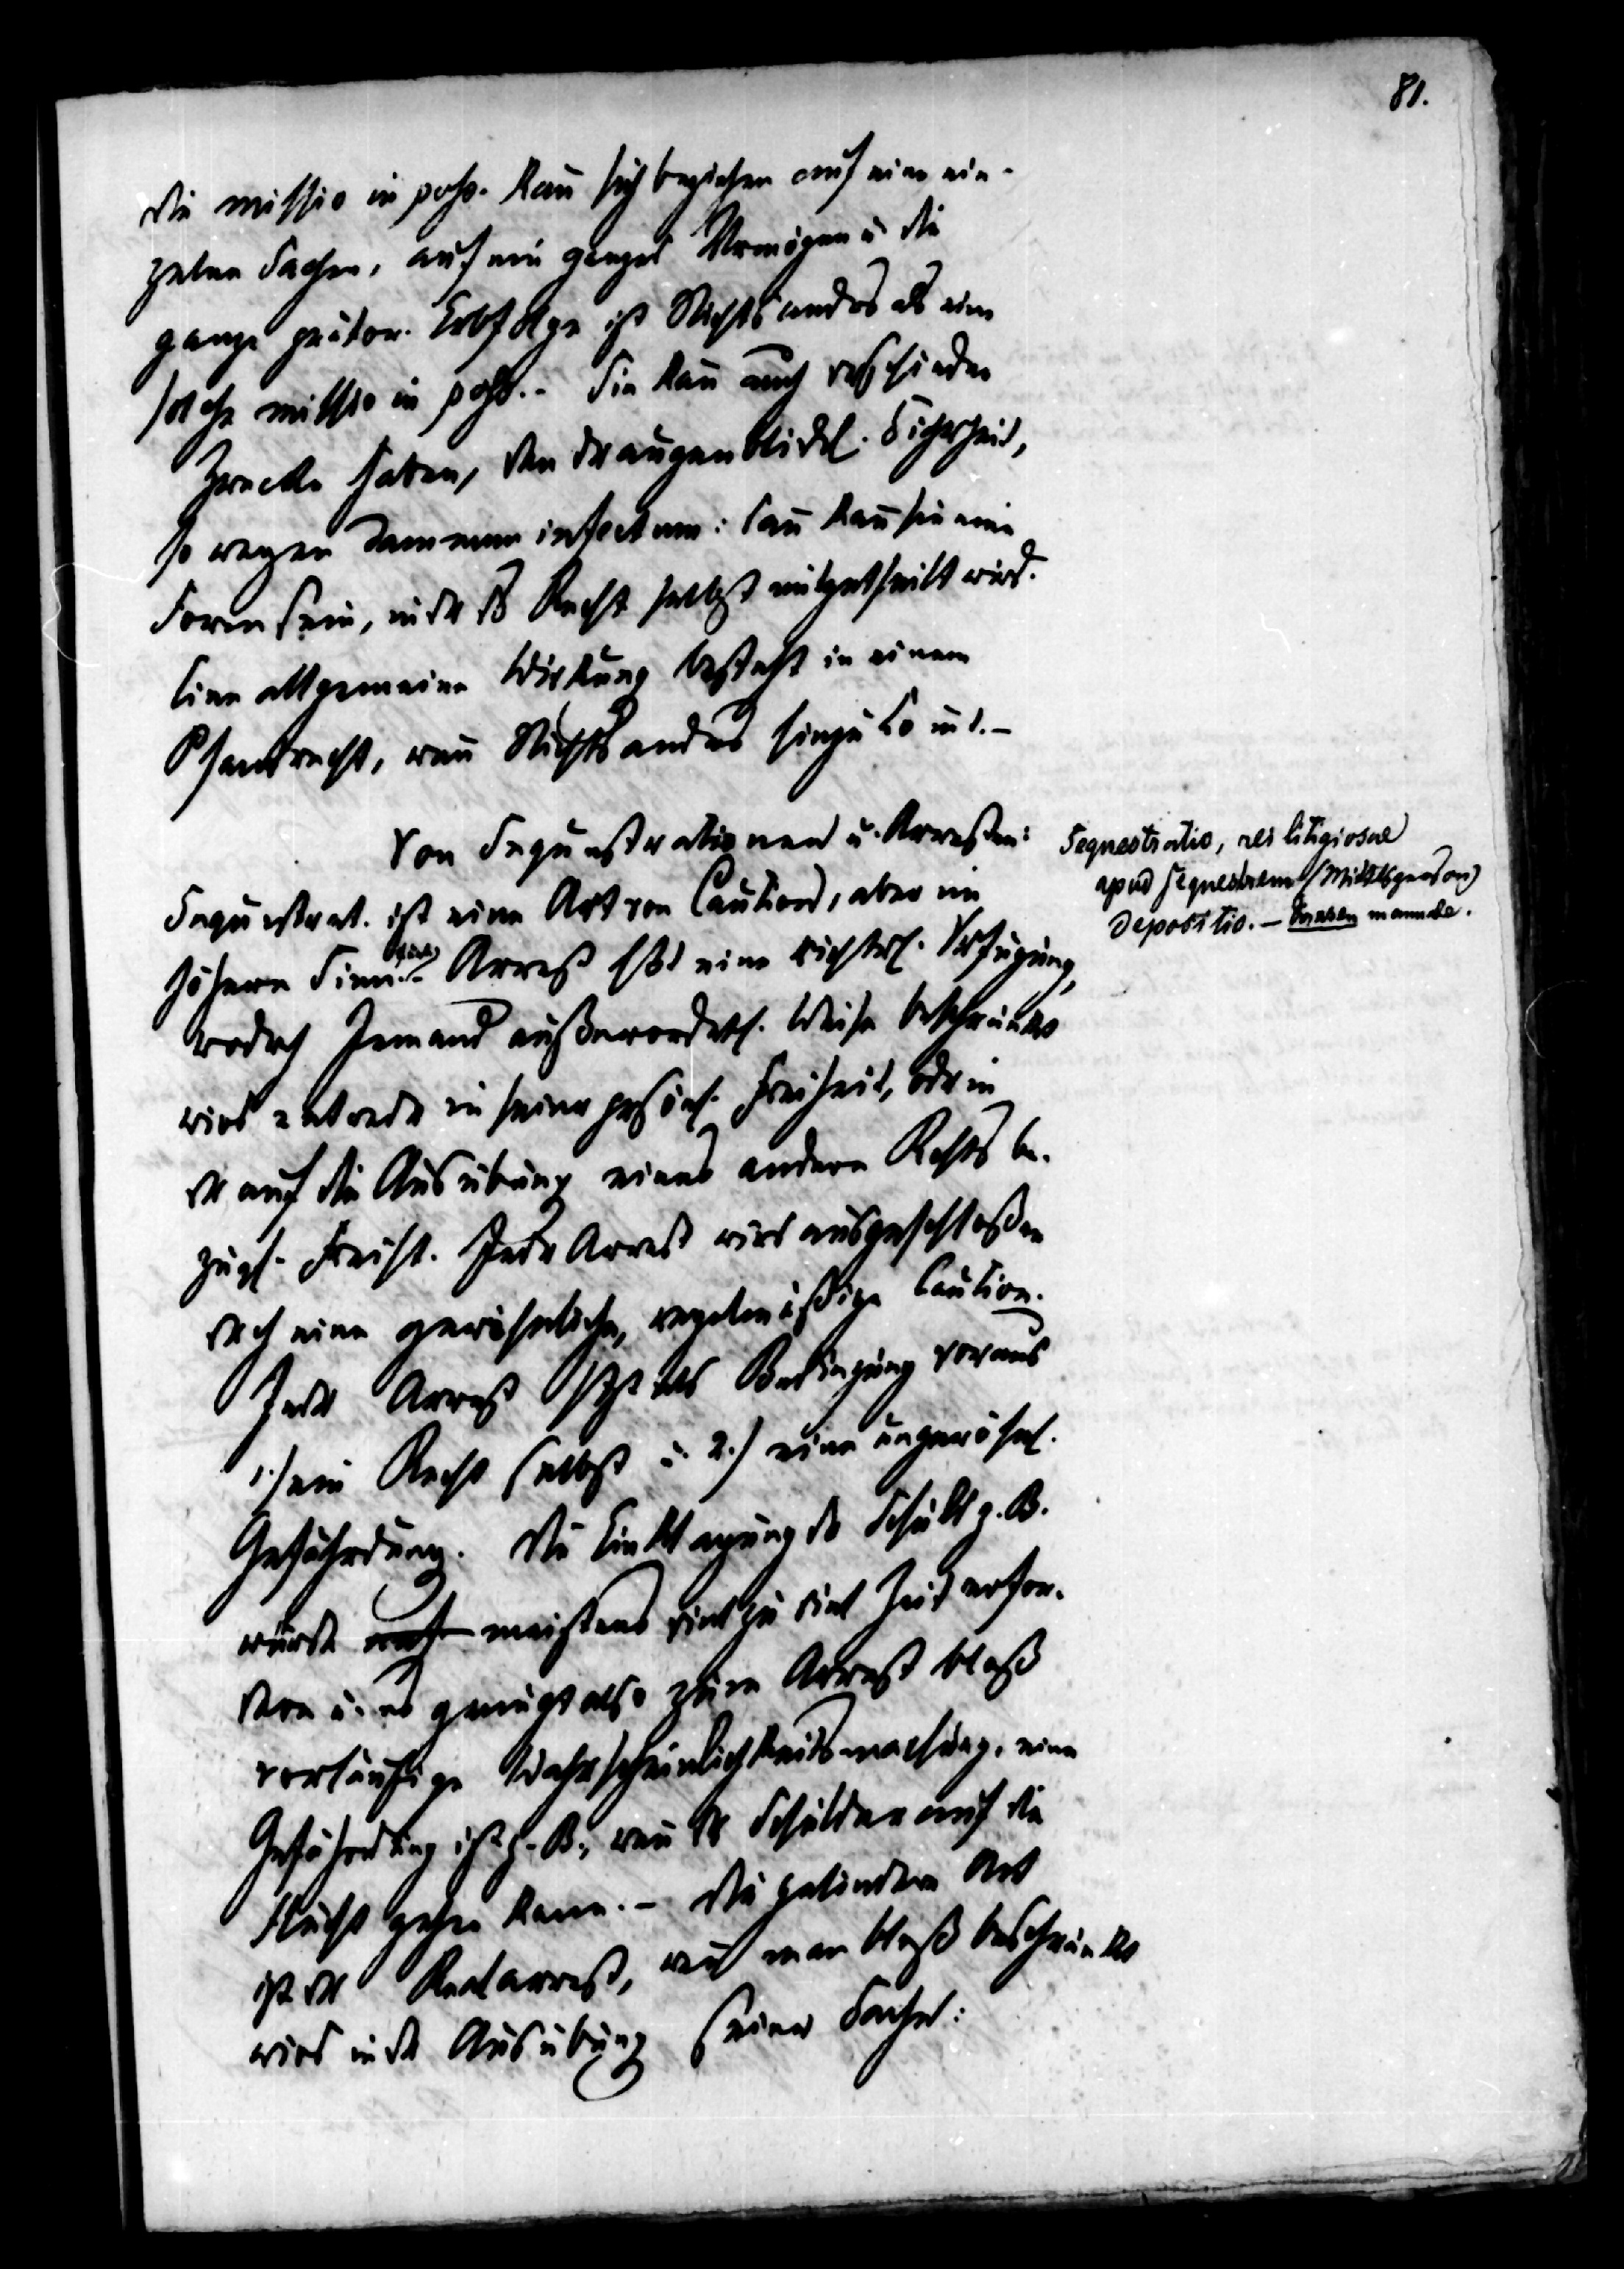 81.
Die missio in poss. kan sich beziehen auf eine ein-
zelne Sachen, auf ein ganzes Vermögen u. die
ganze prätor. Erbfolge ist Nichts andes als eine
solche missio in poss. - Sie kan auch verschiedne
Zwecke haben, den der augenblickl. Sicherheit,
so wegen damnum infectum: dan kan sie eine
Form sein, in der das Recht selbst mitgetheilt wird.
Eine allgemeine Wirkung besteht in einem
Pfandrecht, wen Nichts andes hinzukomt. -
Von Sequestrationen u. Arresten:
Sequestrat. ist eine Art von Caution, aber im
höhern Sinn. - Arrest ist eine richterl. Verfügung,
wodch Jemand außerordentl. Weise beschränkt
wird entwede in seiner persönl. Freiheit, oder in
der auf die Ausübung eines andern Rechts be-
zügl. Freiht. Jeder Arrest wird ausgeschloßen
dch eine gewöhnliche, regelmäßige Caution.
Jeder Arrest setzt als Bedingung voraus
1.) ein Recht selbst u. 2.) eine ungewöhnl.
Gefährdung. Die Einklagung der Schuld z. B.
würde meistens viel zu viel Zeit erfor-
dern u. es genügt also zum Arrest bloß
vorläufige Wahrscheinlichkeitsmachung, eine
Gefährdung ist z. B., wen der Schuldner auf die
Flucht gehen kann. - Die gelindere Art
ist der Realarrest, wen man bloß beschränkt
wird in der Ausübung seiner Sachen:
Sequestratio, rei litigiosae
apud sequestrem (Mittelsperson)
depositio. - manuale.